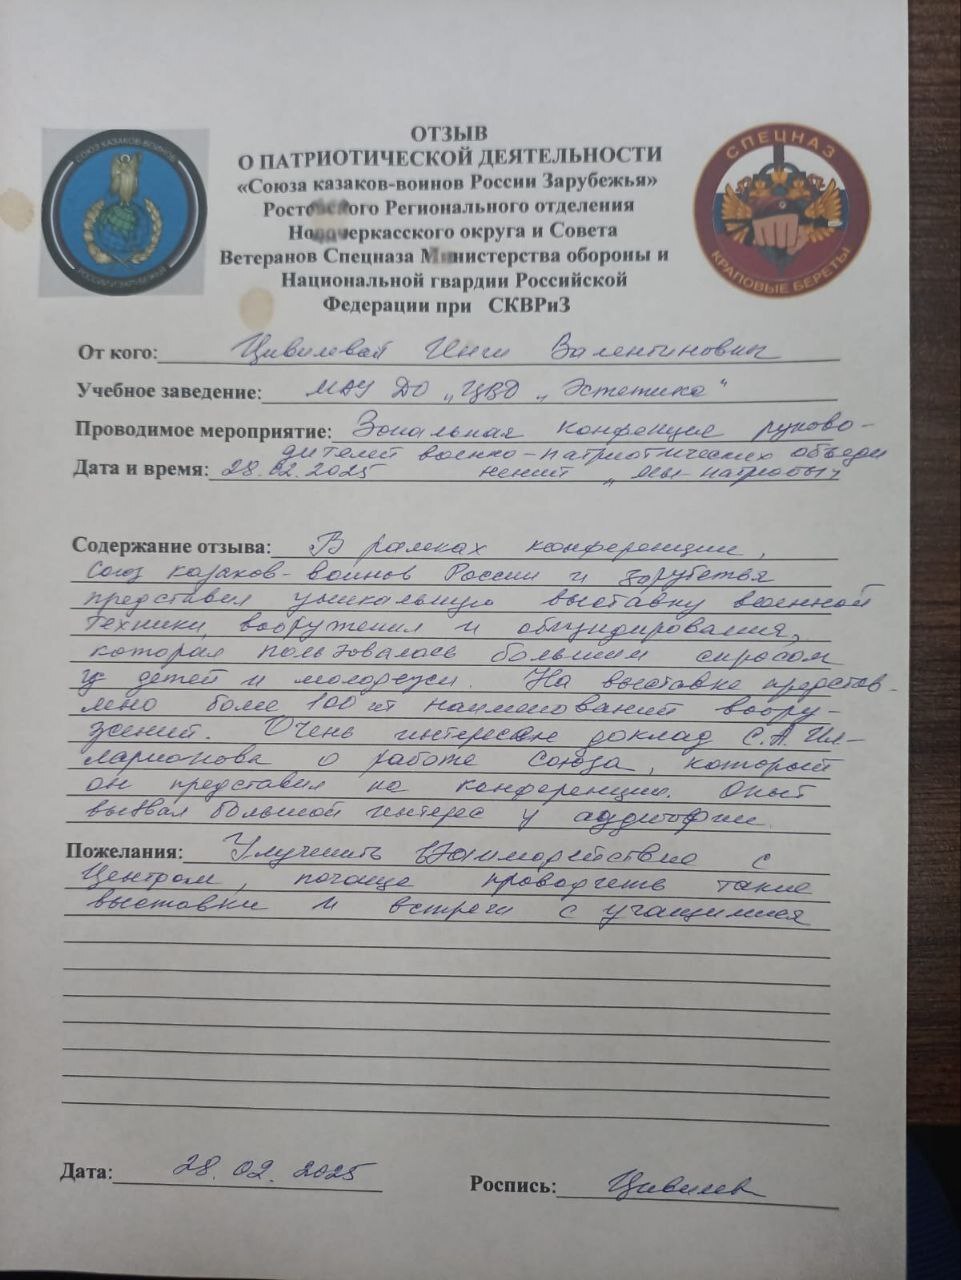 ОТЗЫВ
О ПАТРИОТИЧЕСКОЙ ДЕЯТЕЛЬНОСТИ
«Союза казаков-воинов России Зарубежья»
Ростовского Регионального отделения
Новочеркасского округа и Совета
Ветеранов Спецназа Министерства обороны и
Национальной гвардии Российской
Федерации при СКВРиЗ
СОЮЗ КАЗАКОВ-ВОИНОВ
РОССИИ И ЗАРУБЕЖЬЯ
СПЕЦНАЗ
КРАПОВЫЕ БЕРЕТЫ
От кого: Цивилевой Инги Валентиновны
Учебное заведение: МАУ ДО „ЦВО „Эстетика"
Проводимое мероприятие: Зональная конфенция руково-
дителей военно-патриотических объеди
Дата и время: 28.02.2025 нений „Мы-патриоты"
Содержание отзыва: В рамках конференции,
Союз казаков-воинов России и зарубежья
представил уникальную выставку военной
техники, вооружения и обмундирования,
которая пользовалась большим спросом
у детей и молодежи. На выставке представ-
лено более 100 шт наименований воору-
жений. Очень интересен доклад С.А. Ил-
ларионова о работе Союза, который
он представил на конференции. Опыт
вызвал большой интерес у аудитории.
Пожелания: Улучшить взаимодействие с
Центром, почаще проводить такие
выставки и встречи с учащимися
Дата: 28.02.2025
Роспись: Цивилев